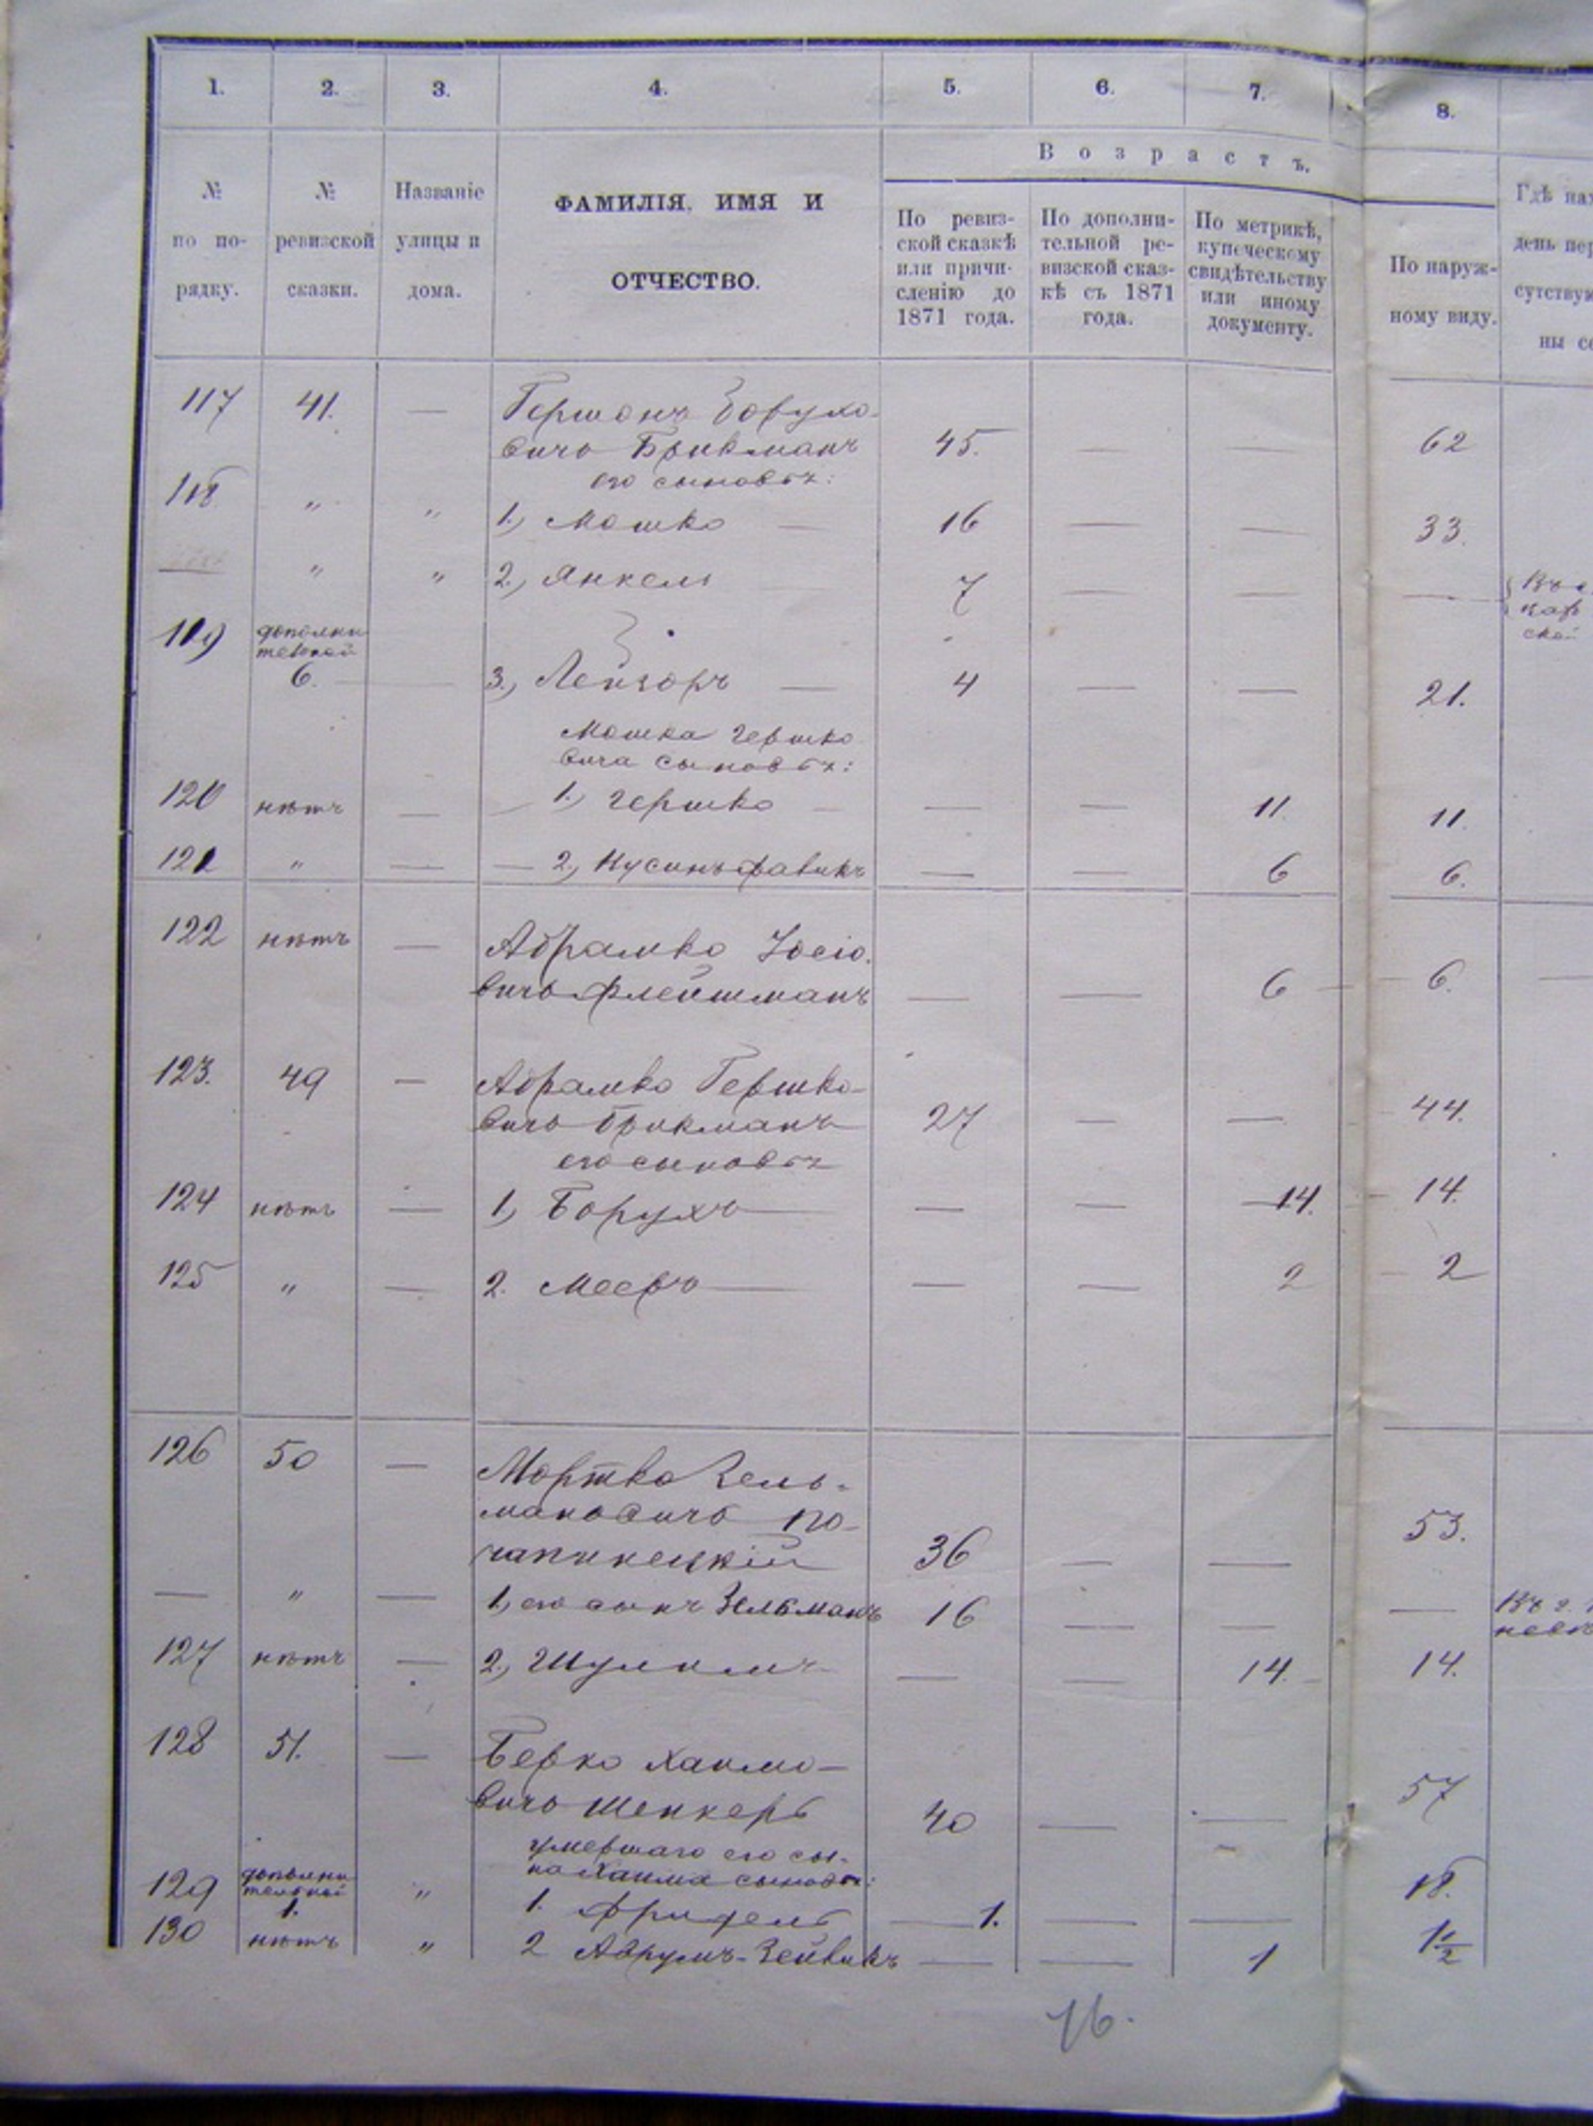 1. 2. 3. 4. 5. 6. 7. 8.
Возрастъ.
№ по порядку.
№ ревизской сказки.
Названіе улицы и дома.
ФАМИЛІЯ, ИМЯ И
ОТЧЕСТВО.
По ревиз-
ской сказкѣ
или причи-
сленію до
1871 года.
По дополни-
тельной ре-
визской сказ-
кѣ съ 1871
года.
По метрикѣ,
купеческому
свидѣтельству
или иному
документу.
По наруж-
ному виду.
Гдѣ нах
день пер
сутствую
ны со
117 41. — Гершонъ Борухо-
вичъ Брикманъ 45. — — 62
его сыновья:
118 „ „ 1., Мошко — 16 — — 33.
— „ „ 2., Янкель 7 — — —
119 дополни
тельной
6. — 3., Лейзоръ — 4 — — 21.
Мошка Гершко
вича сыновья:
120 нѣтъ — 1., Гершко — — — 11. 11.
121 „ — 2., Нусинъ — — 6 6.
122 нѣтъ — Абрамко Іосіо-
вичъ Флейшманъ — — 6 6.
123. 49 — Абрамко Гершко-
вичъ Брикманъ 27 — — 44.
его сыновья
124 нѣтъ — 1, Борухъ — — 14. 14.
125 „ — 2. Мееръ — — 2 2
126 50 — Мортко Зель-
мановичъ По-
чапинецкій 36 — — 53.
— „ — 1, его сынъ Зельманъ 16 — — —
127 нѣтъ — 2., Шулимъ — — 14. 14.
128 51. — Берко Хаимо-
вичъ Шенкеръ 40 — — 57
умершаго его сы-
на Хаима сыновья:
129 дополни
тельной
1. „ 1. Фридель — 1. — — 18.
130 нѣтъ „ 2 Аврумъ-Зейвикъ — — 1 1½
76.